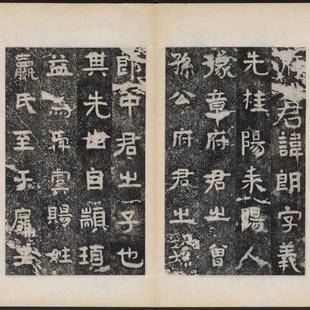 府君諱朗字義
先桂陽耒陽人
豫章府君之曾
孫公府君之孫
郎中君之子也
其先出自顓頊
益為舜虞賜姓
嬴氏至于